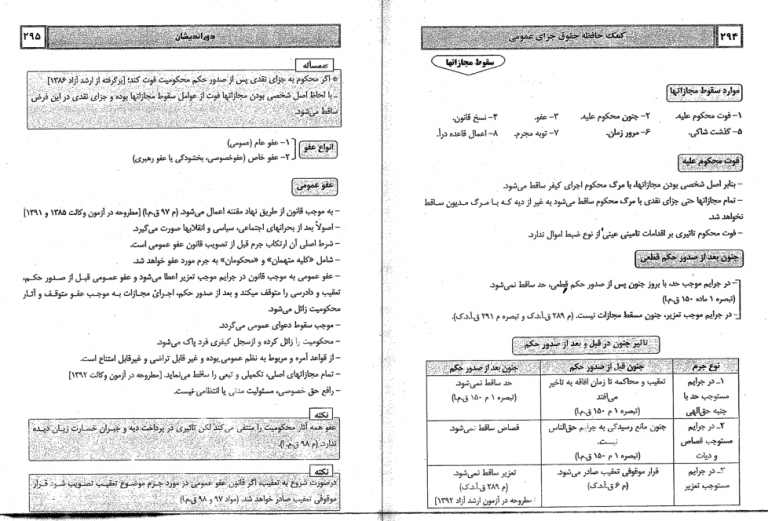 ۲۹۴
کمک حافظه حقوق جزای عمومی
سقوط مجازاتها
موارد سقوط مجازاتها
۱- فوت محکوم علیه. ۲- جنون محکوم علیه. ۳- عفو. ۴- نسخ قانون.
۵- گذشت شاکی. ۶- مرور زمان. ۷- توبه مجرم. ۸- اعمال قاعده درأ.
فوت محکوم علیه
- بنابر اصل شخصی بودن مجازاتها، با مرگ محکوم اجرای کیفر ساقط می‌شود.
- تمام مجازاتها حتی جزای نقدی با مرگ محکوم ساقط می‌شود به غیر از دیه که با مرگ مدیون ساقط
نخواهد شد.
- فوت محکوم تاثیری بر اقدامات تامینی عینی از نوع ضبط اموال ندارد.
جنون بعد از صدور حکم قطعی
- در جرایم موجب حد، با بروز جنون پس از صدور حکم قطعی، حد ساقط نمی‌شود.
(تبصره ۱ ماده ۱۵۰ ق.م.ا)
- در جرایم موجب تعزیر، جنون مسقط مجازات نیست. (م ۲۸۹ ق.آ.د.ک و تبصره م ۲۹۱ ق.آ.د.ک).
تاثیر جنون در قبل و بعد از صدور حکم
نوع جرم جنون قبل از صدور حکم جنون بعد از صدور حکم
۱- در جرایم
مستوجب حد با
جنبه حق‌الهی
تعقیب و محاکمه تا زمان افاقه به تاخیر
می‌افتد
(تبصره ۱ م ۱۵۰ ق.م.ا)
حد ساقط نمی‌شود.
(تبصره ۱ م ۱۵۰ ق.م.ا)
۲- در جرایم
مستوجب قصاص
و دیات
جنون مانع رسیدگی به جرایم حق‌الناس
نیست.
(تبصره ۱ م ۱۵۰ ق.م.ا)
قصاص ساقط نمی‌شود.
۳- در جرایم
مستوجب تعزیر
قرار موقوفی تعقیب صادر می‌شود.
(م ۶ ق.آ.د.ک)
تعزیر ساقط نمی‌شود.
(م ۲۸۹ ق.آ.د.ک)
(مطروحه در آزمون ارشد آزاد ۱۳۹۲)
دوراندیشان
۲۹۵
مسأله
* اگر محکوم به جزای نقدی پس از صدور حکم محکومیت فوت کند؛ [برگرفته از ارشد آزاد ۱۳۸۶]
- با لحاظ اصل شخصی بودن مجازاتها فوت از عوامل سقوط مجازاتها بوده و جزای نقدی در این فرض
ساقط می‌شود.
انواع عفو
۱- عفو عام (عمومی)
۲- عفو خاص (عفوخصوصی، بخشودگی یا عفو رهبری)
عفو عمومی
- به موجب قانون از طریق نهاد مقننه اعمال می‌شود. (م ۹۷ ق.م.ا) [مطروحه در آزمون وکالت ۱۳۸۵ و ۱۳۹۱]
- اصولاً بعد از بحرانهای اجتماعی، سیاسی و انقلابها صورت می‌گیرد.
- شرط اصلی آن ارتکاب جرم قبل از تصویب قانون عفو عمومی است.
- شامل «کلیه متهمان» و «محکومان» به جرم مورد عفو خواهد شد.
- عفو عمومی به موجب قانون در جرایم موجب تعزیر اعطا می‌شود و عفو عمومی قبل از صدور حکم،
تعقیب و دادرسی را متوقف میکند و بعد از صدور حکم، اجرای مجازات به موجب عفو متوقف و آثار
محکومیت زائل می‌شود.
- موجب سقوط دعوای عمومی می‌گردد.
- محکومیت را زائل کرده و ازسجل کیفری فرد پاک می‌شود.
- از قواعد آمره و مربوط به نظم عمومی بوده و غیر قابل تراضی و غیرقابل امتناع است.
- تمام مجازاتهای اصلی، تکمیلی و تبعی را ساقط می‌نماید. [مطروحه در آزمون وکالت ۱۳۹۲]
- رافع حق خصوصی، مسئولیت مدنی یا انتظامی نیست.
نکته
عفو همه آثار محکومیت را منتفی می‌کند لکن تاثیری در پرداخت دیه و جبران خسارت زیان دیده
ندارد. (م ۹۸ ق.م.ا).
نکته
درصورت شروع به تعقیب، اگر قانون عفو عمومی در مورد جرم موضوع تعقیب تصویب شود قرار
موقوفی تعقیب صادر خواهد شد. (مواد ۹۷ و ۹۸ ق.م.ا)